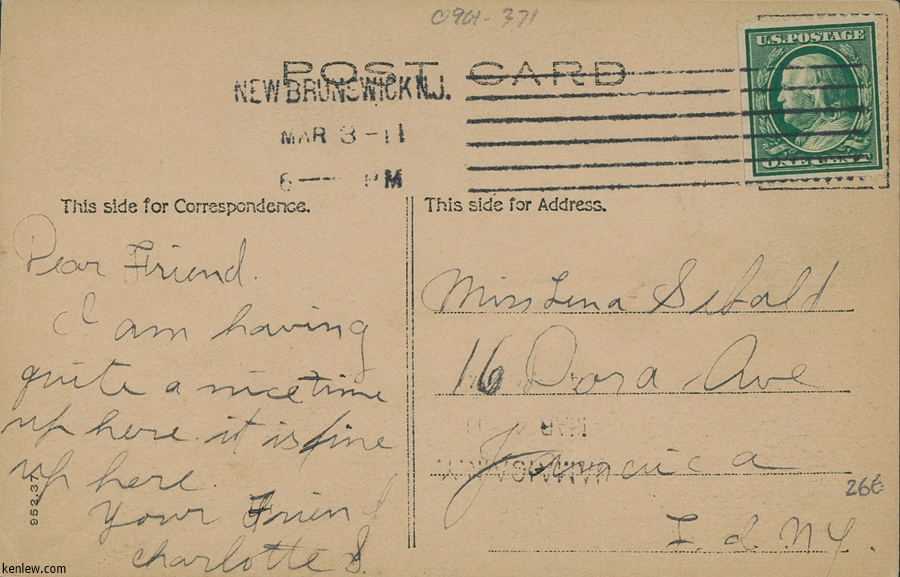 0961-371
U.S. POSTAGE
POST CARD
NEW BRUNSWICK N.J.
MAR 3-11
6 — PM
ONE CENT
This side for Correspondence.
Dear Friend.
I am having
quite a nice time
up here. it is fine
up here.
Your Friend
Charlotte S.
952.37
This side for Address.
Miss Lena Sebald
16 Dora Ave
Jamaica
L. I. NY.
266
kenlew.com